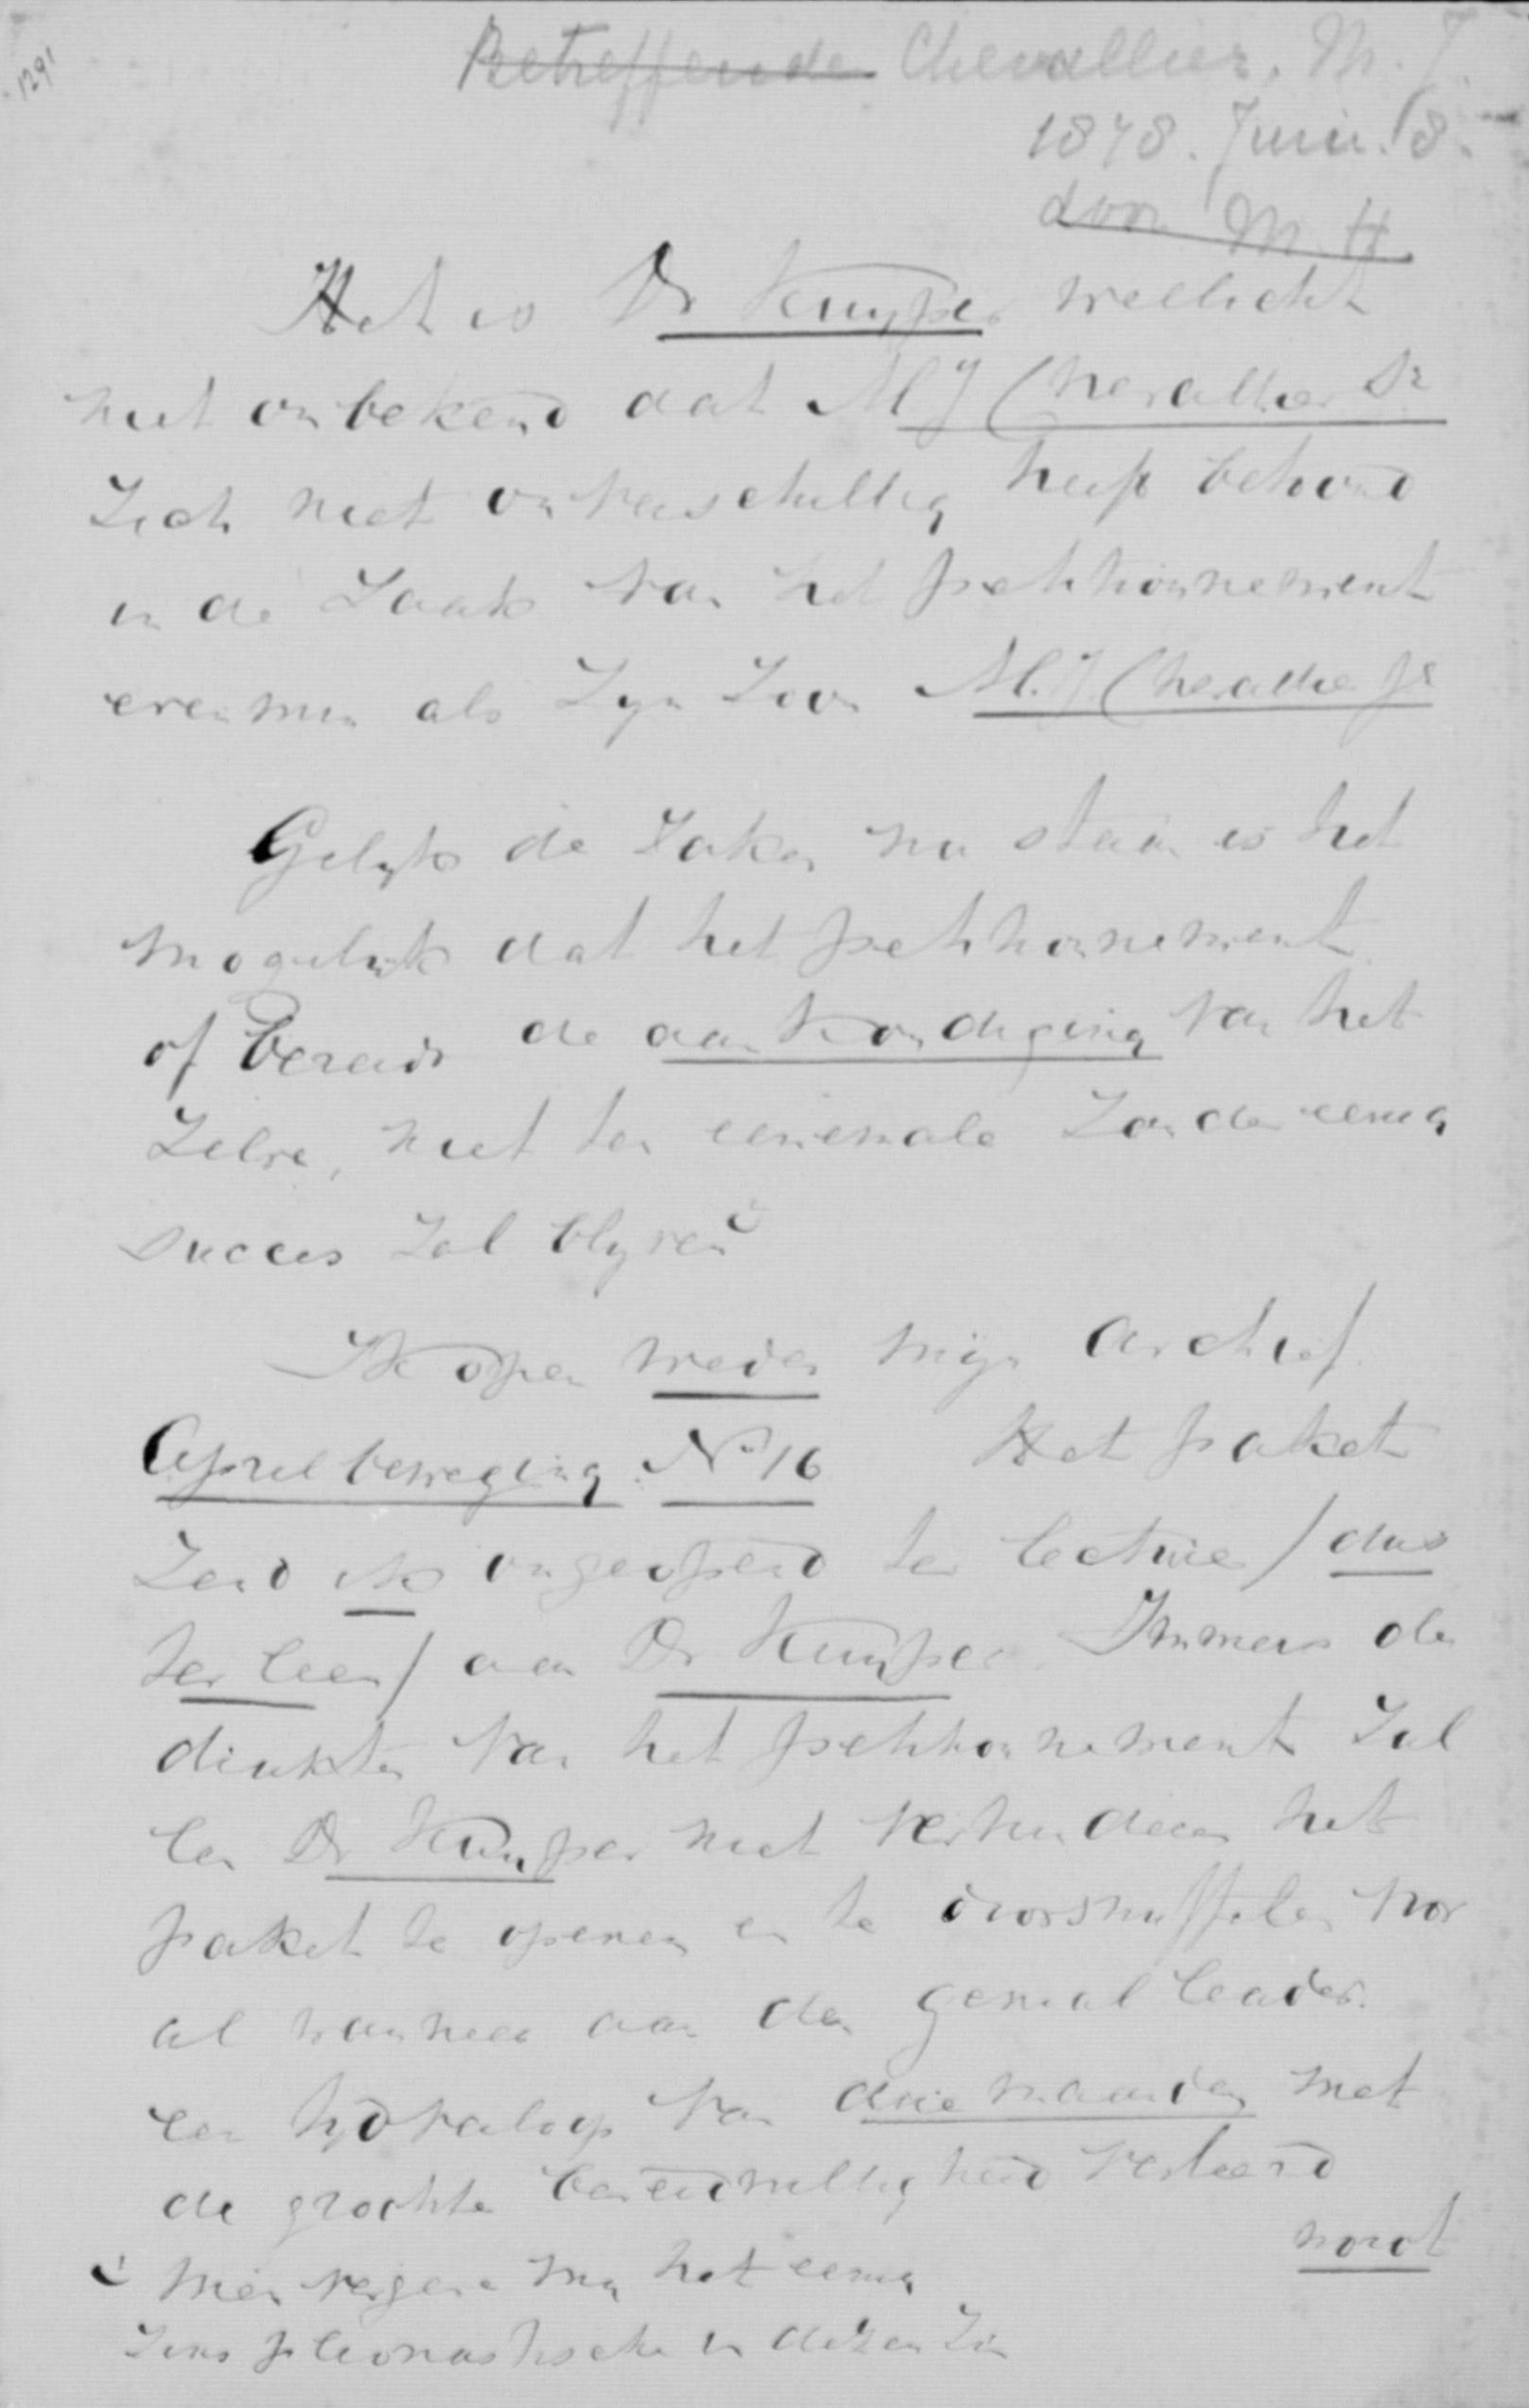 1291
Betreffende Chevallier, M. J.
1878. Juni 18.
door M. H.
Het is Dr Kuyper wellicht
niet onbekend dat M J Chevallier Sr
Zich niet onverschillig heeft betoond
in de Zaak van het petitionnement
evenmin als Zyn Zoon M. J. Chevallier Jr
Gelyk de Zaken nu staan is het
mogelyk dat het petitionnement
of bereids de aankondiging van het
Zelve, niet ten eenemale Zonder eenig
succes Zal blyven
Ik open weder mijn Archief
Aprilbeweging No 16 Het paket
Zend ik ongeopend ter lecture / dus
ter leen / aan Dr Kuyper Immers de
drukte van het petitionnement Zal
len Dr Kuyper niet verhinderen het
paket te openen en te doorsnuffelen voor
al wanneer aan den geniaal leader
een tydverloop van drie maanden met
de grootste bereidwilligheid verleend
wordt
Men vergeve my het eenig
Zins pleonastische in dezen Zin